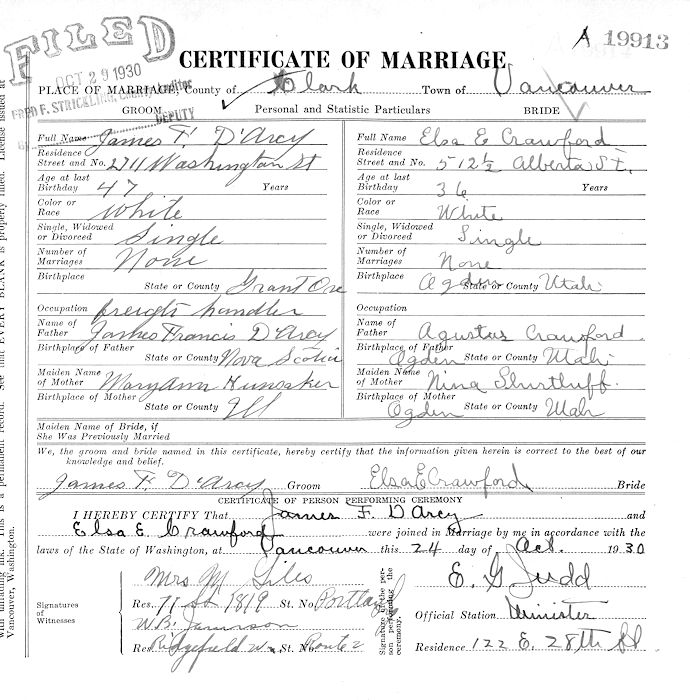 FILED
OCT 29 1930
FRED F. STRICKLING, County Auditor
DEPUTY
A 19913
CERTIFICATE OF MARRIAGE
PLACE OF MARRIAGE, County of Clark Town of Vancouver
GROOM Personal and Statistic Particulars BRIDE
Full Name James F. D'Arcy
Residence
Street and No. 2711 Washington St
Age at last
Birthday 47 Years
Color or
Race White
Single, Widowed
or Divorced Single
Number of
Marriages None
Birthplace
State or County Grant Ore
Occupation freight handler
Name of
Father James Francis D'Arcy
Birthplace of Father
State or County Nova Scotia
Maiden Name
of Mother Mary Ann
Birthplace of Mother
State or County Ill
Full Name Elsa E Crawford
Residence
Street and No. 512 1/2 Alberta St.
Age at last
Birthday 36 Years
Color or
Race White
Single, Widowed
or Divorced Single
Number of
Marriages None
Birthplace
Ogden State or County Utah
Occupation
Name of
Father Agustus Crawford
Birthplace of Father
Ogden State or County Utah
Maiden Name
of Mother Nina Shurtluff
Birthplace of Mother
Ogden State or County Utah
Maiden Name of Bride, if
She Was Previously Married
We, the groom and bride named in this certificate, hereby certify that the information given herein is correct to the best of our
knowledge and belief.
James F. D'Arcy Groom Elsa E Crawford Bride
CERTIFICATE OF PERSON PERFORMING CEREMONY
I HEREBY CERTIFY That James F. D'Arcy and
Elsa E. Crawford were joined in Marriage by me in accordance with the
laws of the State of Washington, at Vancouver this 24 day of Oct. 1930
Signatures
of
Witnesses
Mrs M Giles
Res. 1819 St. No. Portland
W.B.
Res. Ridgefield Wn. St. No. Route 2
Signature of the per-
son performing the
ceremony.
E. G. Judd
Official Station Minister
Residence 122 E. 28th St
License issued at
Vancouver, Washington.
See that EVERY BLANK is properly filled.
This is a permanent record.
with unfading ink.